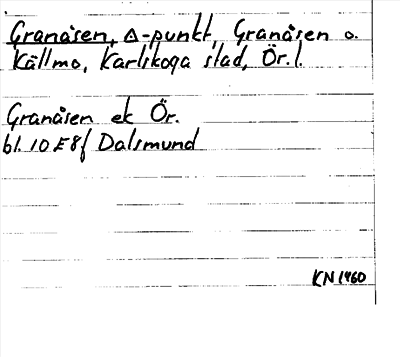 Granåsen, Δ-punkt, Granåsen o.
Källmo, Karlskoga stad, Ör. l.
Granåsen ek Ör.
bl. 10 E 8f Dalsmund
KN 1960